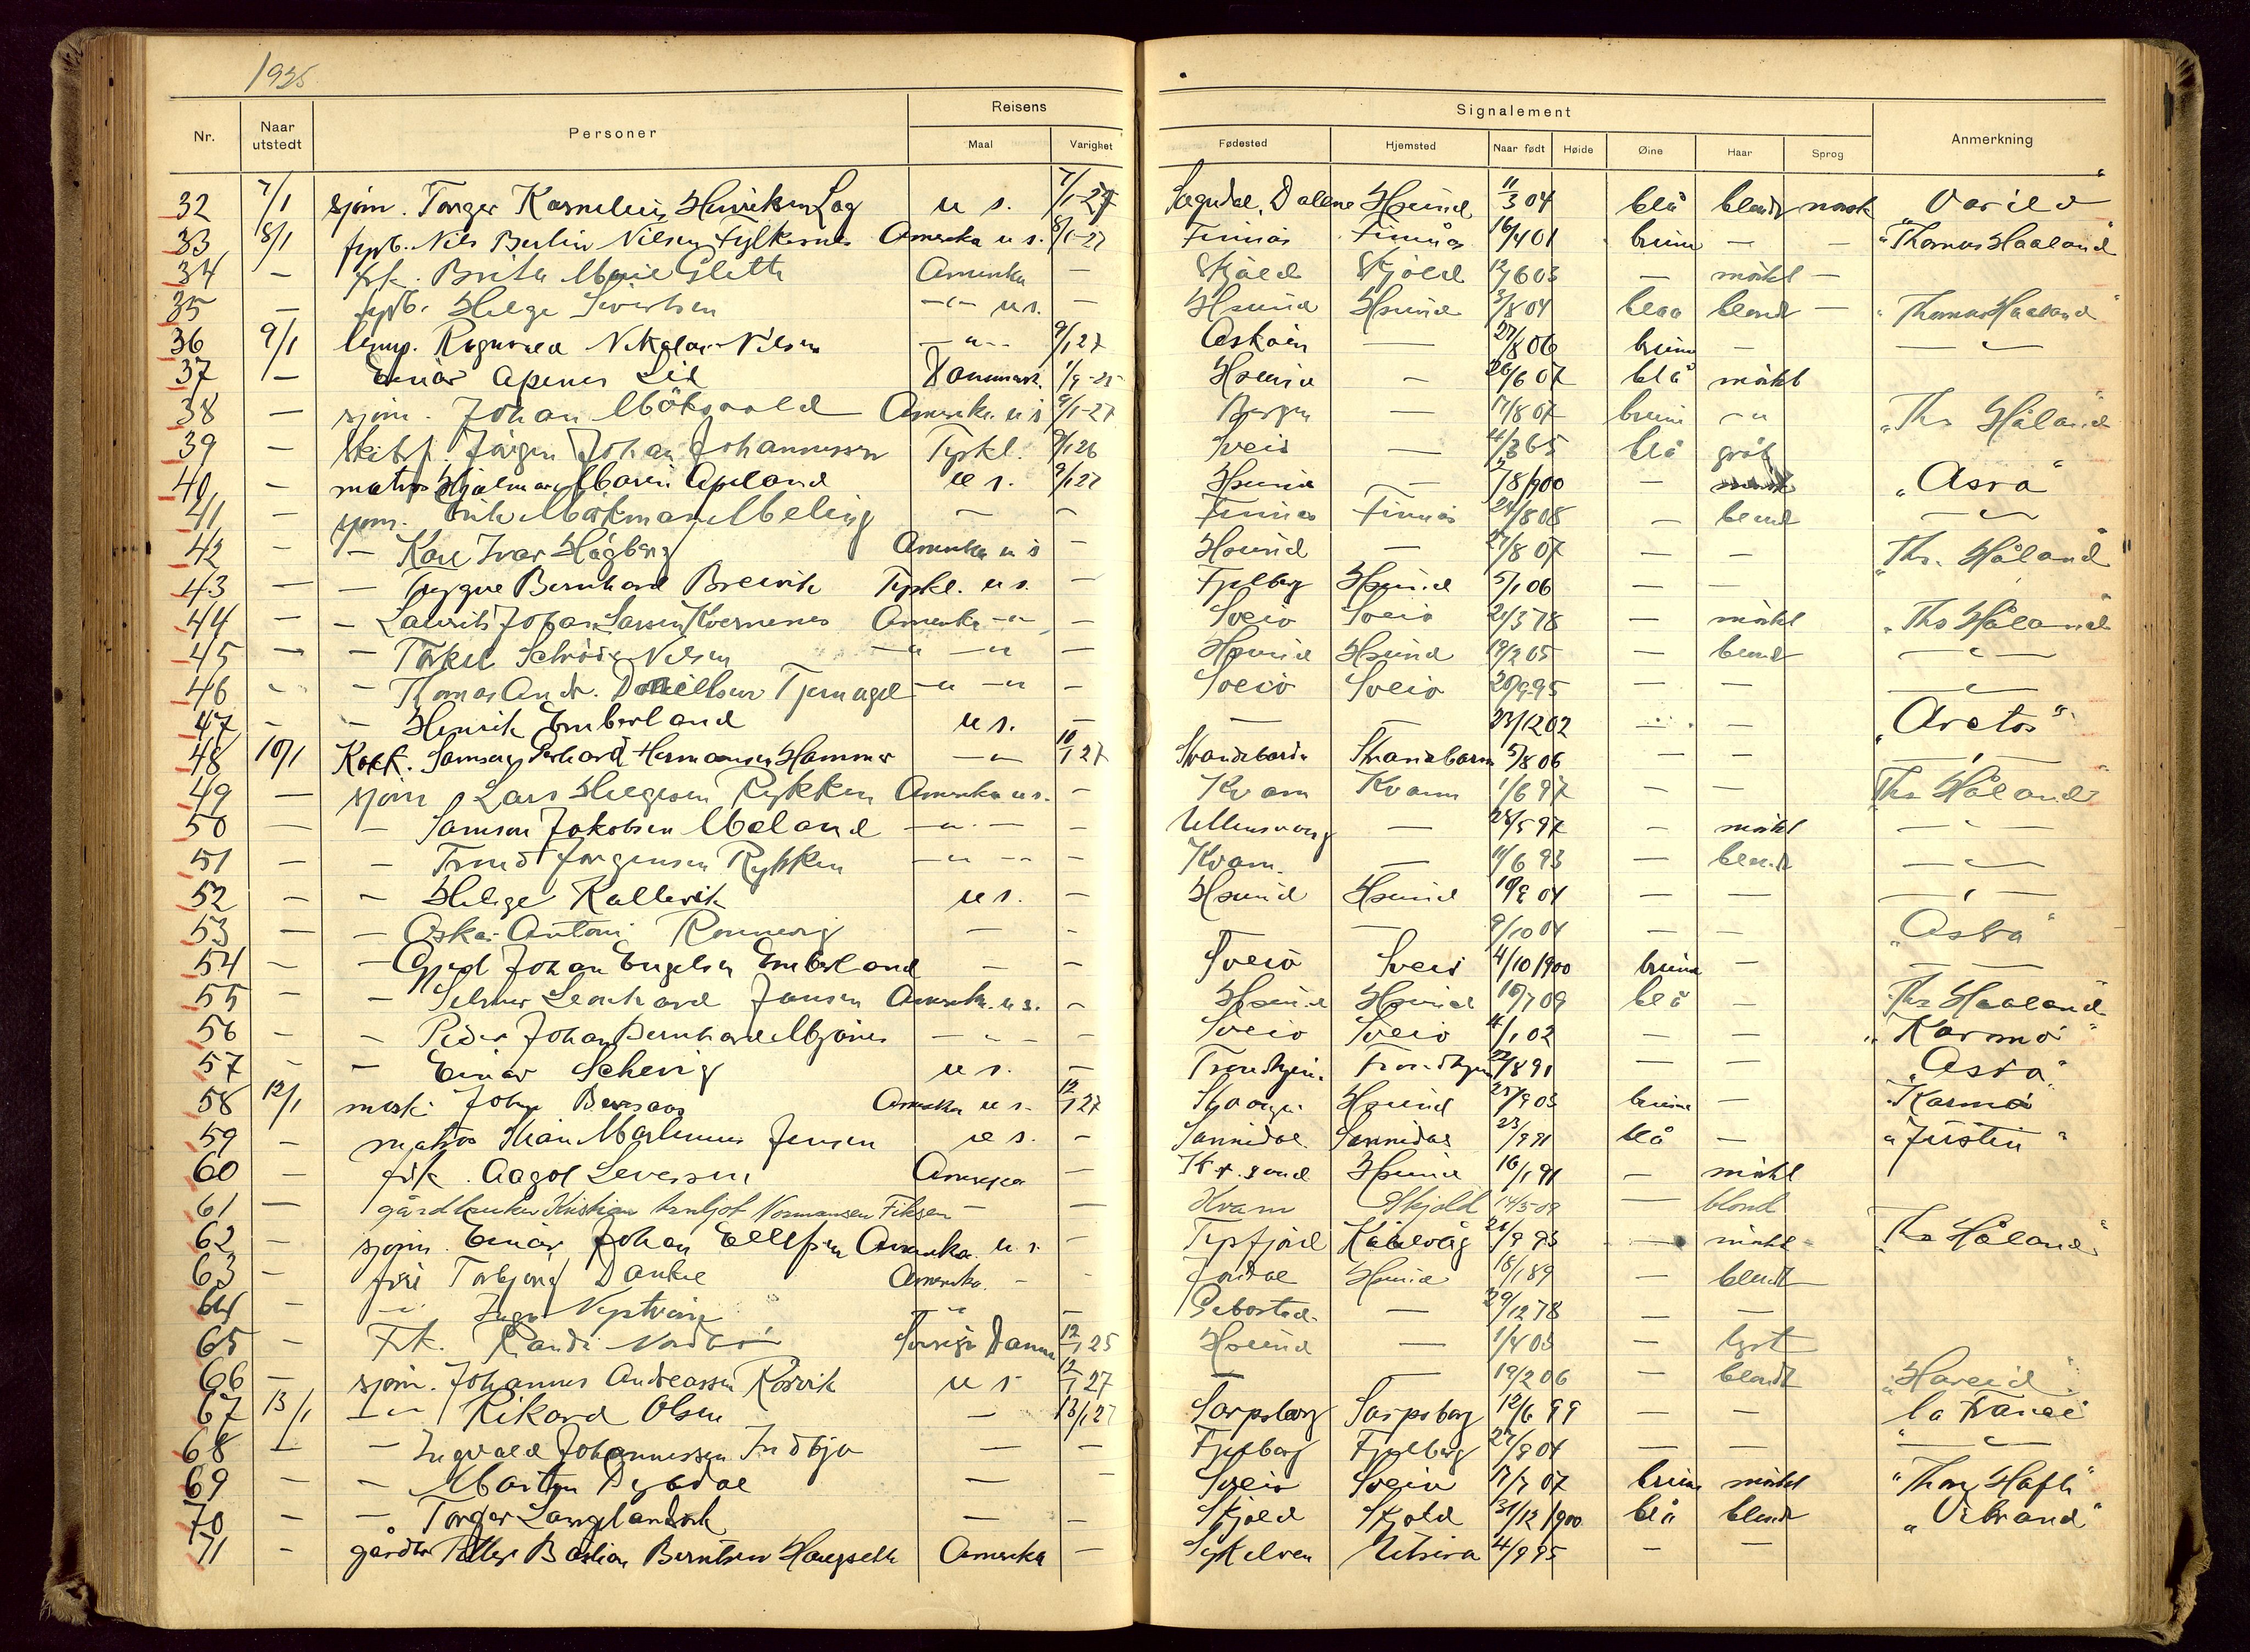 1925
Nr. Naar utstedt Personer Reisens Maal Varighet Signalement Fødested Hjemsted Naar født Høide Øine Haar Sprog Anmerkning
32 7/1 sjøm. Torger Kornelius Henriksen Log u s. 7/1-27 Sogndal, Dalene Hsund 11/3 04 blå blondt norsk
33 8/1 fyrb. Nils Berlin Nilsen Fylkesnes Amerika u s. 8/1-27 Finnås Finnås 16/4 01 brune — — "Thomas Haaland"
34 — frk. Brita Marie Sletta Amerika — Skjold Skjold 12/6 03 — mörkt —
35 — fyrb. Helge Sivertsen —"— u s. — Hsund Hsund 3/8 04 blaa blondt — "Thomas Haaland"
36 9/1 Ragnvald Nikolai Nilsen —"— 9/1 27 Asköen — 27/8 06 brune — —"—
37 — Einar Aspenes Lid Danmark. 1/9-25 Hsund — 26/6 07 blå mörkt
38 — sjøm. Johan Amerika u s 9/1-27 Bergen — 17/8 07 brune —"— "Ths Håland
39 — Skibsf. Jörgen Johan Johannessen Tyskl. 9/1 26 Sveio — 4/3 65 blå gråt
40 — matros Hjalmar Marin Apeland u s. 9/1 27 Hsund — 7/8 1900 — "Astra"
41 — sjøm. Erik Mörkman Meling — — Finnås Finnås 24/8 08 — blond —"—
42 — — Kåre Ivar Högberg Amerika u s — Hsund — 27/8 07 — — "Ths. Håland"
43 — — Trygve Bernhard Breivik Tyskl. u s. — Fjelberg Hsund 5/1 06 — —
44 — — Laurits Johan Larsen Kvernenes Amerika —"— — Sveio Sveio 21/3 78 — mörkt "Ths Håland"
45 — — Torkel Schröder Nilsen —"— —"— — Hsund Hsund 19/2 05 — blondt —"—
46 — — Thomas Andr. Daniellsen Tjernagel —"— —"— — Sveio Sveio 20/9 95 — — —"—
47 — — Henrik Emberland u s. — — — 23/12 02 — — "Arctos"
48 10/1 Kokk. Samson Gerhard Hermansen Hammer —"— 10/1 27 Strandebarm Strandebarm 5/8 06 — — —"—
49 — sjøm Lars Helgesen Rykken Amerika u s. — Kvam Kvam 1/6 97 — — "Ths Håland"
50 — — Samson Jakobsen Meland —"— — Ullensvang — 28/5 97 — mörkt —"—
51 — — Trond Jörgensen Rykken —"— — Kvam. — 11/6 93 — blondt —"—
52 — — Helge Kallevik u s. — Hsund Hsund 19/8 04 — — —"—
53 — — Oskar Antoni Rönnevig — — — — 9/10 04 — — "Astra"
54 — — Gjert Johan Engelsen Emberland — — Sveio Sveio 4/10 1900 brune — —
55 — — Selmer Leonhard Jansen Amerika. u s. — Hsund Hsund 16/7 09 blå — "Ths Haaland
56 — — Peder Johan Bernhard Mjånes —"— — Sveio Sveio 4/1 02 — — "Karmö"
57 — — Einar Schevig u s. — Trondhjem. Trondhjem 22/8 91 — — "Astra"
58 12/1 mask. Johan Amerika u s. 12/1 27 Skaanevik Hsund 25/9 03 brune — "Karmö
59 — matros Marlenius Jensen u s. — Sannidal Sannidal 23/9 91 blå — "Justin"
60 — frk. Aagot Leversen Amerika — Kr.sund Hsund 16/1 91 — mörkt
61 — gårdbruker Kristian Arnljot Normansen Fiksen — — Kvam Skjold 14/5 08 — blond
62 — sjøm. Einar Johan Ellefsen Amerika. u s. — Tysfjord Kåalvåg 21/9 93 — mörkt "Ths Håland"
63 — frú Torbjörg Danke Amerika. — — Jondal Hsund 18/1 89 — blondt
64 — —"— Inga —"— — — 29/12 78 — —
65 — Frk. Randi Nordbö Sverige Danm 12/1 25 Hsund — 1/4 05 — lyst
66 — sjøm. Johannes Andreassen Rossvik u s 12/1 27 — — 19/2 06 — blondt "Hareid"
67 13/1 —"— Rikard Olsen — 13/1 27 Sarpsborg Sarpsborg 12/6 99 — — "la France"
68 — — Ingvald Johannessen Indbjo — — Fjelberg Fjelberg 27/9 04 — — —"—
69 — — Morten Dybdal — — Sveio Sveio 17/7 07 brune mörkt "Thor
70 — — Torger Langelandsvik — — Skjold Skjold 31/12 1900 blå blondt "Vibrand"
71 — gårdbr Peller Bastian Berntsen Haugseth Amerika — Sykelven Utsira 4/9 95 — —